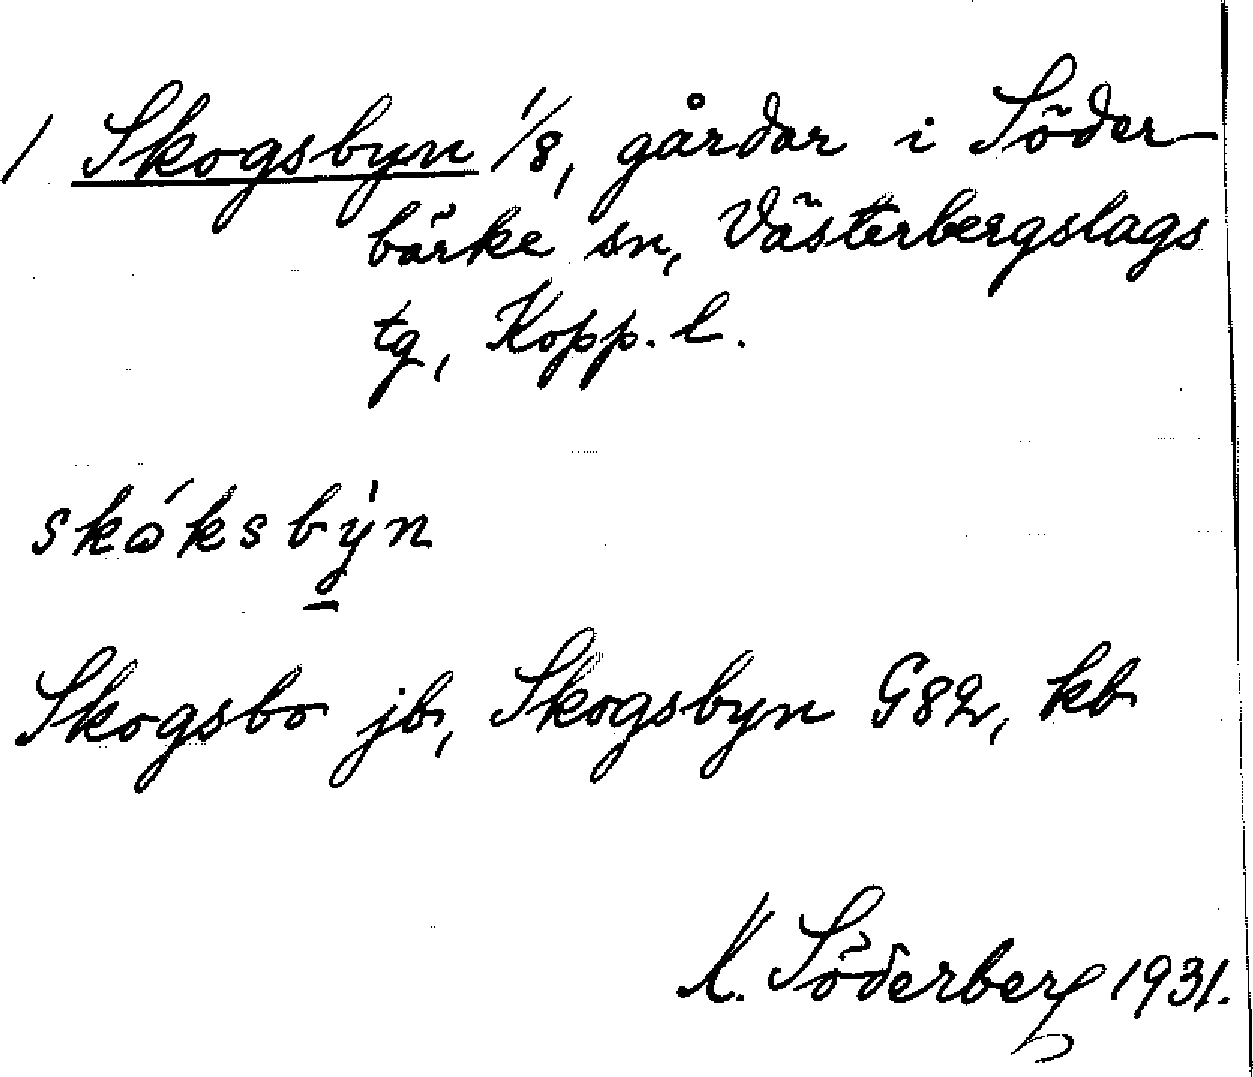 / Skogsbyn 1/8, gårdar i Söder-
bärke sn, Västerbergslags
tg, Kopp. l.
skóksbỳn
Skogsbo jb, Skogsbyn G82, kb
K. Söderberg 1931.